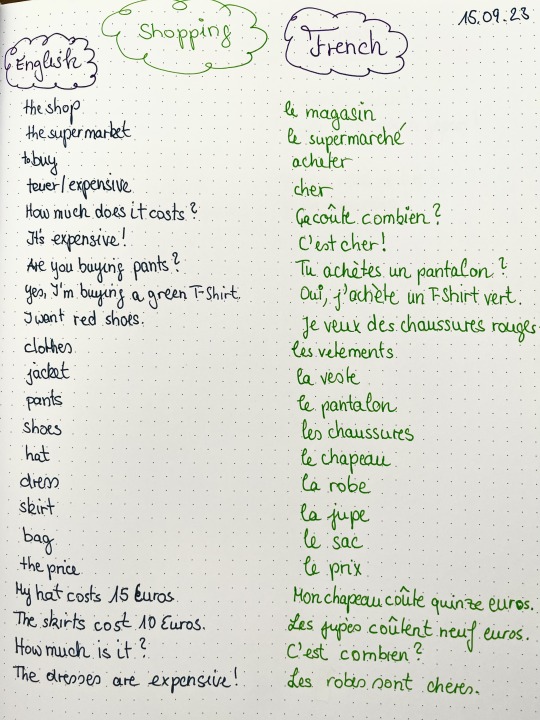 15.09.23
Shopping
English
French
the shop
le magasin
the supermarket
le supermarché
to buy
acheter
teuer/expensive
cher
How much does it costs?
Ça coûte combien?
It's expensive!
C'est cher!
Are you buying pants?
Tu achètes un pantalon?
Yes, I'm buying a green T-Shirt.
Oui, j'achète un T-Shirt vert.
I want red shoes.
Je veux des chaussures rouges.
clothes
les vetements
jacket
la veste
pants
le pantalon
shoes
les chaussures
hat
le chapeau
dress
la robe
skirt
la jupe
bag
le sac
the price
le prix
My hat costs 15 Euros.
Mon chapeau coûte quinze euros.
The skirts cost 10 Euros.
Les jupes coûtent neuf euros.
How much is it?
C'est combien?
The dresses are expensive!
Les robes sont cheres.